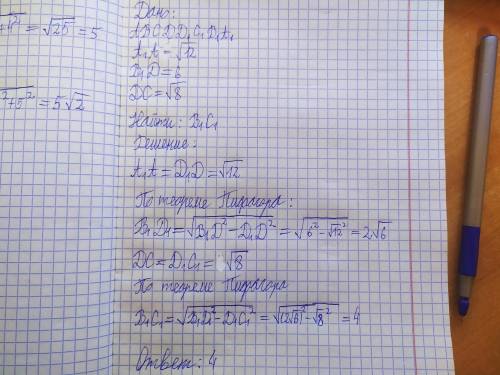 +4² = √25 = 5
²+5² = 5√2
Дано:
ABCDD₁C₁B₁A₁
A₁A = √12
B₁D = 6
DC = √8
Найти: B₁C₁
Решение:
A₁A = D₁D = √12
По теореме Пифагора:
B₁D₁ = √(B₁D² - D₁D²) = √(6² - √12²) = 2√6
DC = D₁C₁ = √8
По теореме Пифагора
B₁C₁ = √(B₁D₁² - D₁C₁²) = √((2√6)² - √8²) = 4
Ответ: 4